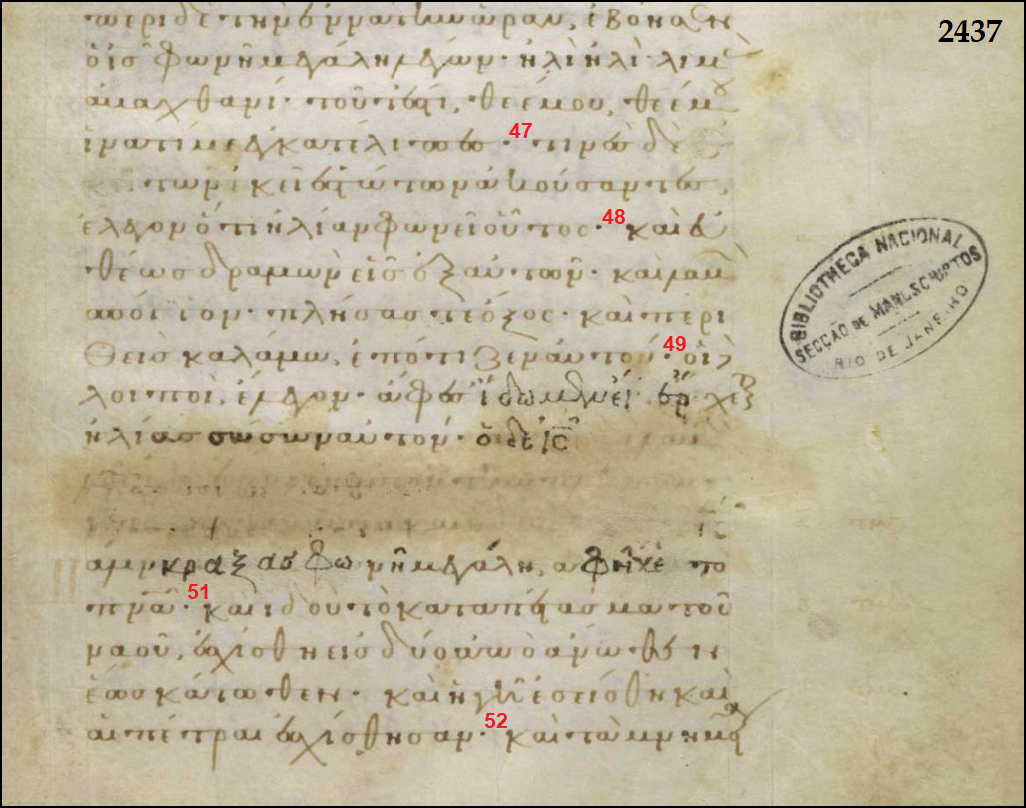 2437
περὶ δὲ τὴν ἐννάτην ὥραν, ἐβόησεν
ὁ ἰς φωνῇ μεγάλῃ λέγων· ἠλὶ ἠλὶ· λιμ
ἁμαχθανί· τοῦτέστι, θεέ μου, θεέ μου
ἱνατί με ἐγκατέλιπες· 47 τινὲς δὲ
τῶν ἐκεῖ ἑστώτων ἀκούσαντες,
ἔλεγον ὅτι ἠλίαν φωνεῖ οὗτος· 48 καὶ εὐ
θέως δραμὼν εἷς ἐξ αὐτῶν· καὶ λαβὼν
σπόγγον· πλήσας τε ὄξος· καὶ περι
θεὶς καλάμω, ἐπότιζεν αὐτόν· 49 οἱ δὲ
λοιποὶ, ἔλεγον· ἄφες ἴδωμεν εἰ ἔρχε
ἠλίας σώσων αὐτόν· ὁ δὲ ἰς
λιν κράξας φωνῇ μεγάλη, ἀφῆκε τὸ
πνα· 51 καὶ ἰδοὺ τὸ καταπέτασμα τοῦ
ναοῦ, ἐσχίσθη εἰς δύο ἀπὸ ἄνωθεν
ἕως κάτωθεν· καὶ ἡ γῆ ἐσείσθη καὶ
αἱ πέτραι ἐσχίσθησαν· 52 καὶ τὰ μνημεῖα
BIBLIOTHECA NACIONAL
SECÇÃO DE MANUSCRIPTOS
RIO DE JANEIRO